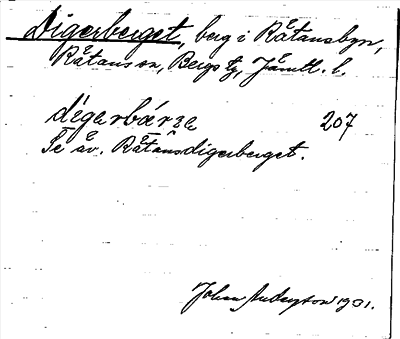 Digerberget, berg i Råtansbyn,
Råtans sn, Bergs tg, Jämtl. l.
dégarbǽrʒa 207
Se äv. Råtansdigerberget.
Johan 1931.